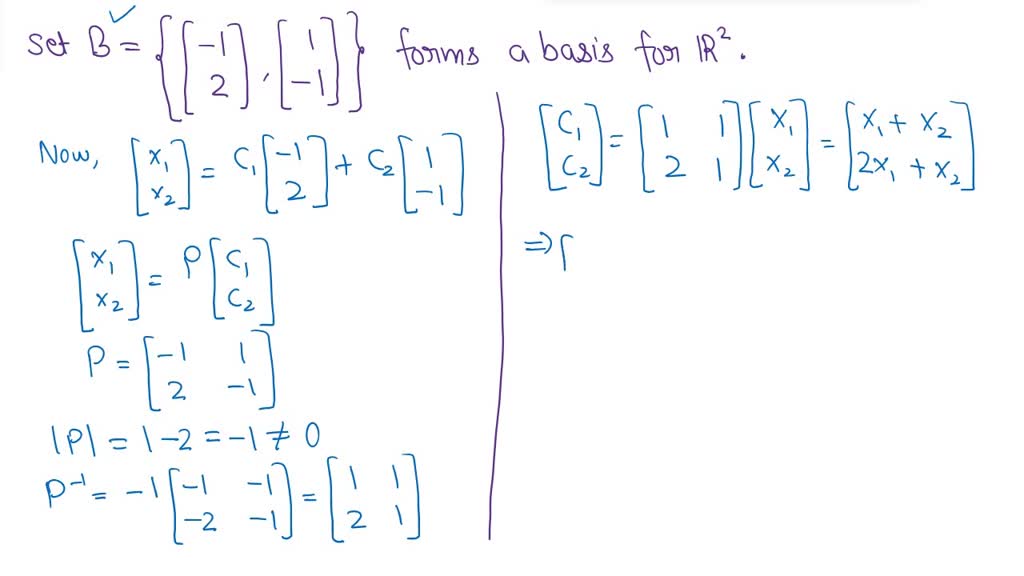 set B = {[-1 2], [1 -1]} forms a basis for ℝ².
Now, [x₁ x₂] = C₁[-1 2] + C₂[1 -1]
[x₁ x₂] = P[C₁ C₂]
P = [-1 1
2 -1]
|P| = 1 - 2 = -1 ≠ 0
P⁻¹ = -1[-1 -1
-2 -1] = [1 1
2 1]
[C₁ C₂] = [1 1
2 1][x₁ x₂] = [x₁ + x₂
2x₁ + x₂]
⇒ [